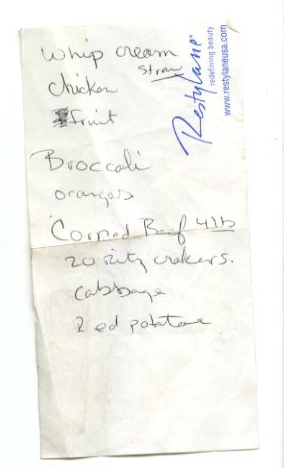 Whip cream
Straw
Chicken
Fruit
Broccoli
oranges
Corned Beef 4lb
20 Ritz crakers.
cabbage
Red potatoe
Restylane®
redefining beauty
www.restylaneusa.com